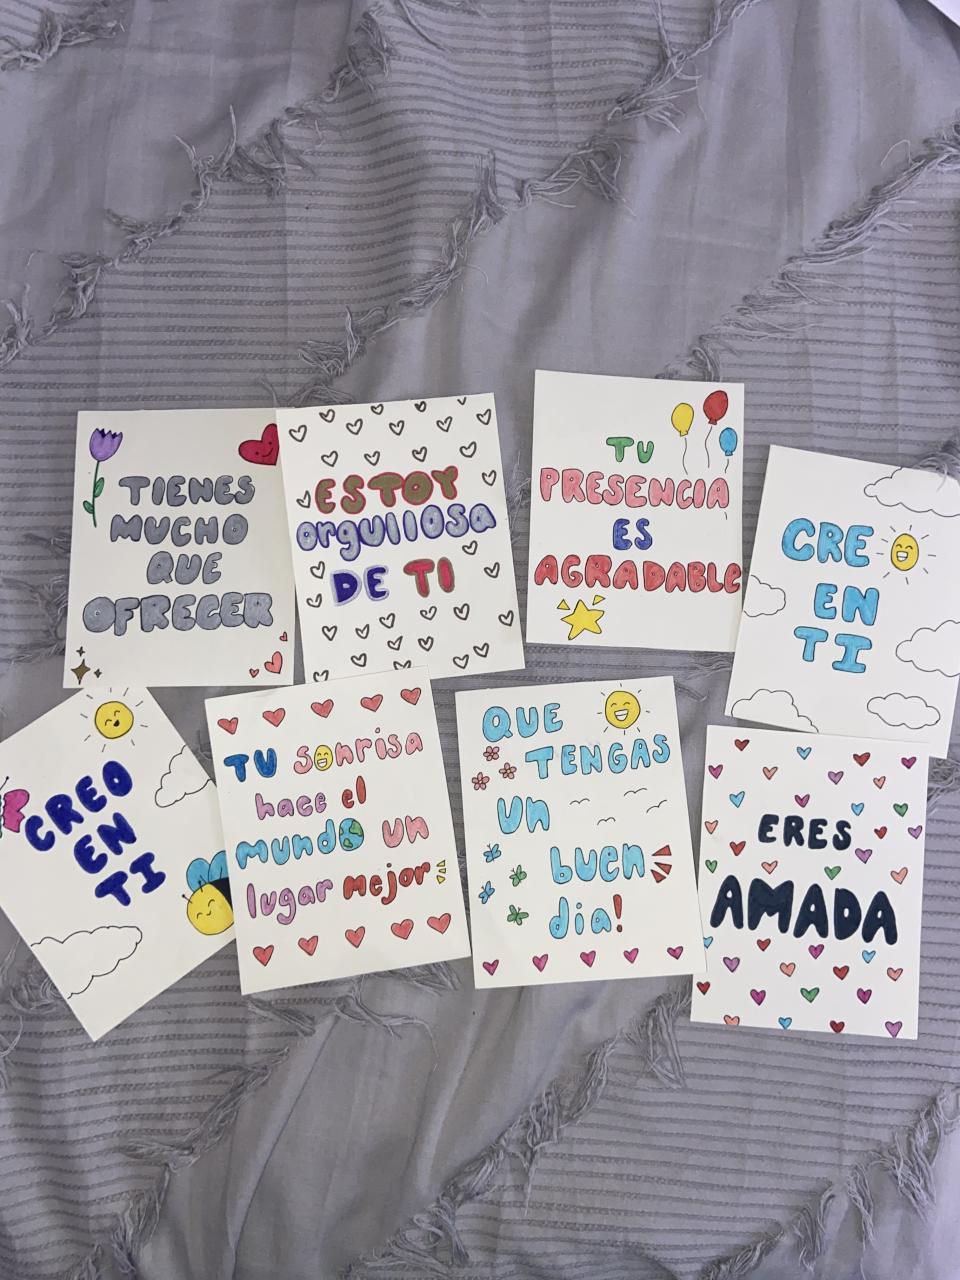 TIENES
MUCHO
QUE
OFRECER
ESTOY
orgullosa
DE TI
TU
PRESENCIA
ES
AGRADABLE
CRE
EN
TI
CREO
EN
TI
TU sonrisa
hace el
mundo un
lugar mejor
QUE
TENGAS
un
buen
dia!
ERES
AMADA